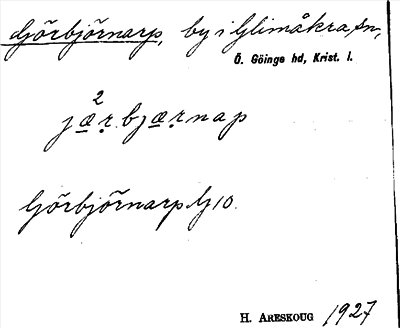 Görbjörnarp, by i Glimåkra sn,
Ö. Göinge hd, Krist. l.
2
jæ̱ṛbjæ̱ṛnap
Görbjörnarp Gj 10.
H. ARESKOUG 1927